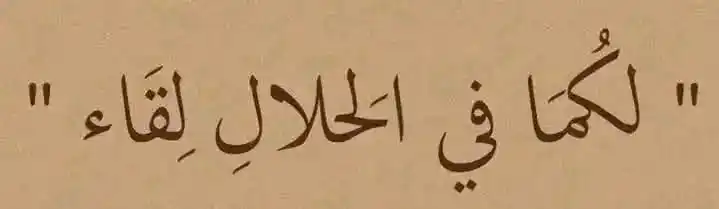 " لكُمَا في الَحلالِ لِقَاء "